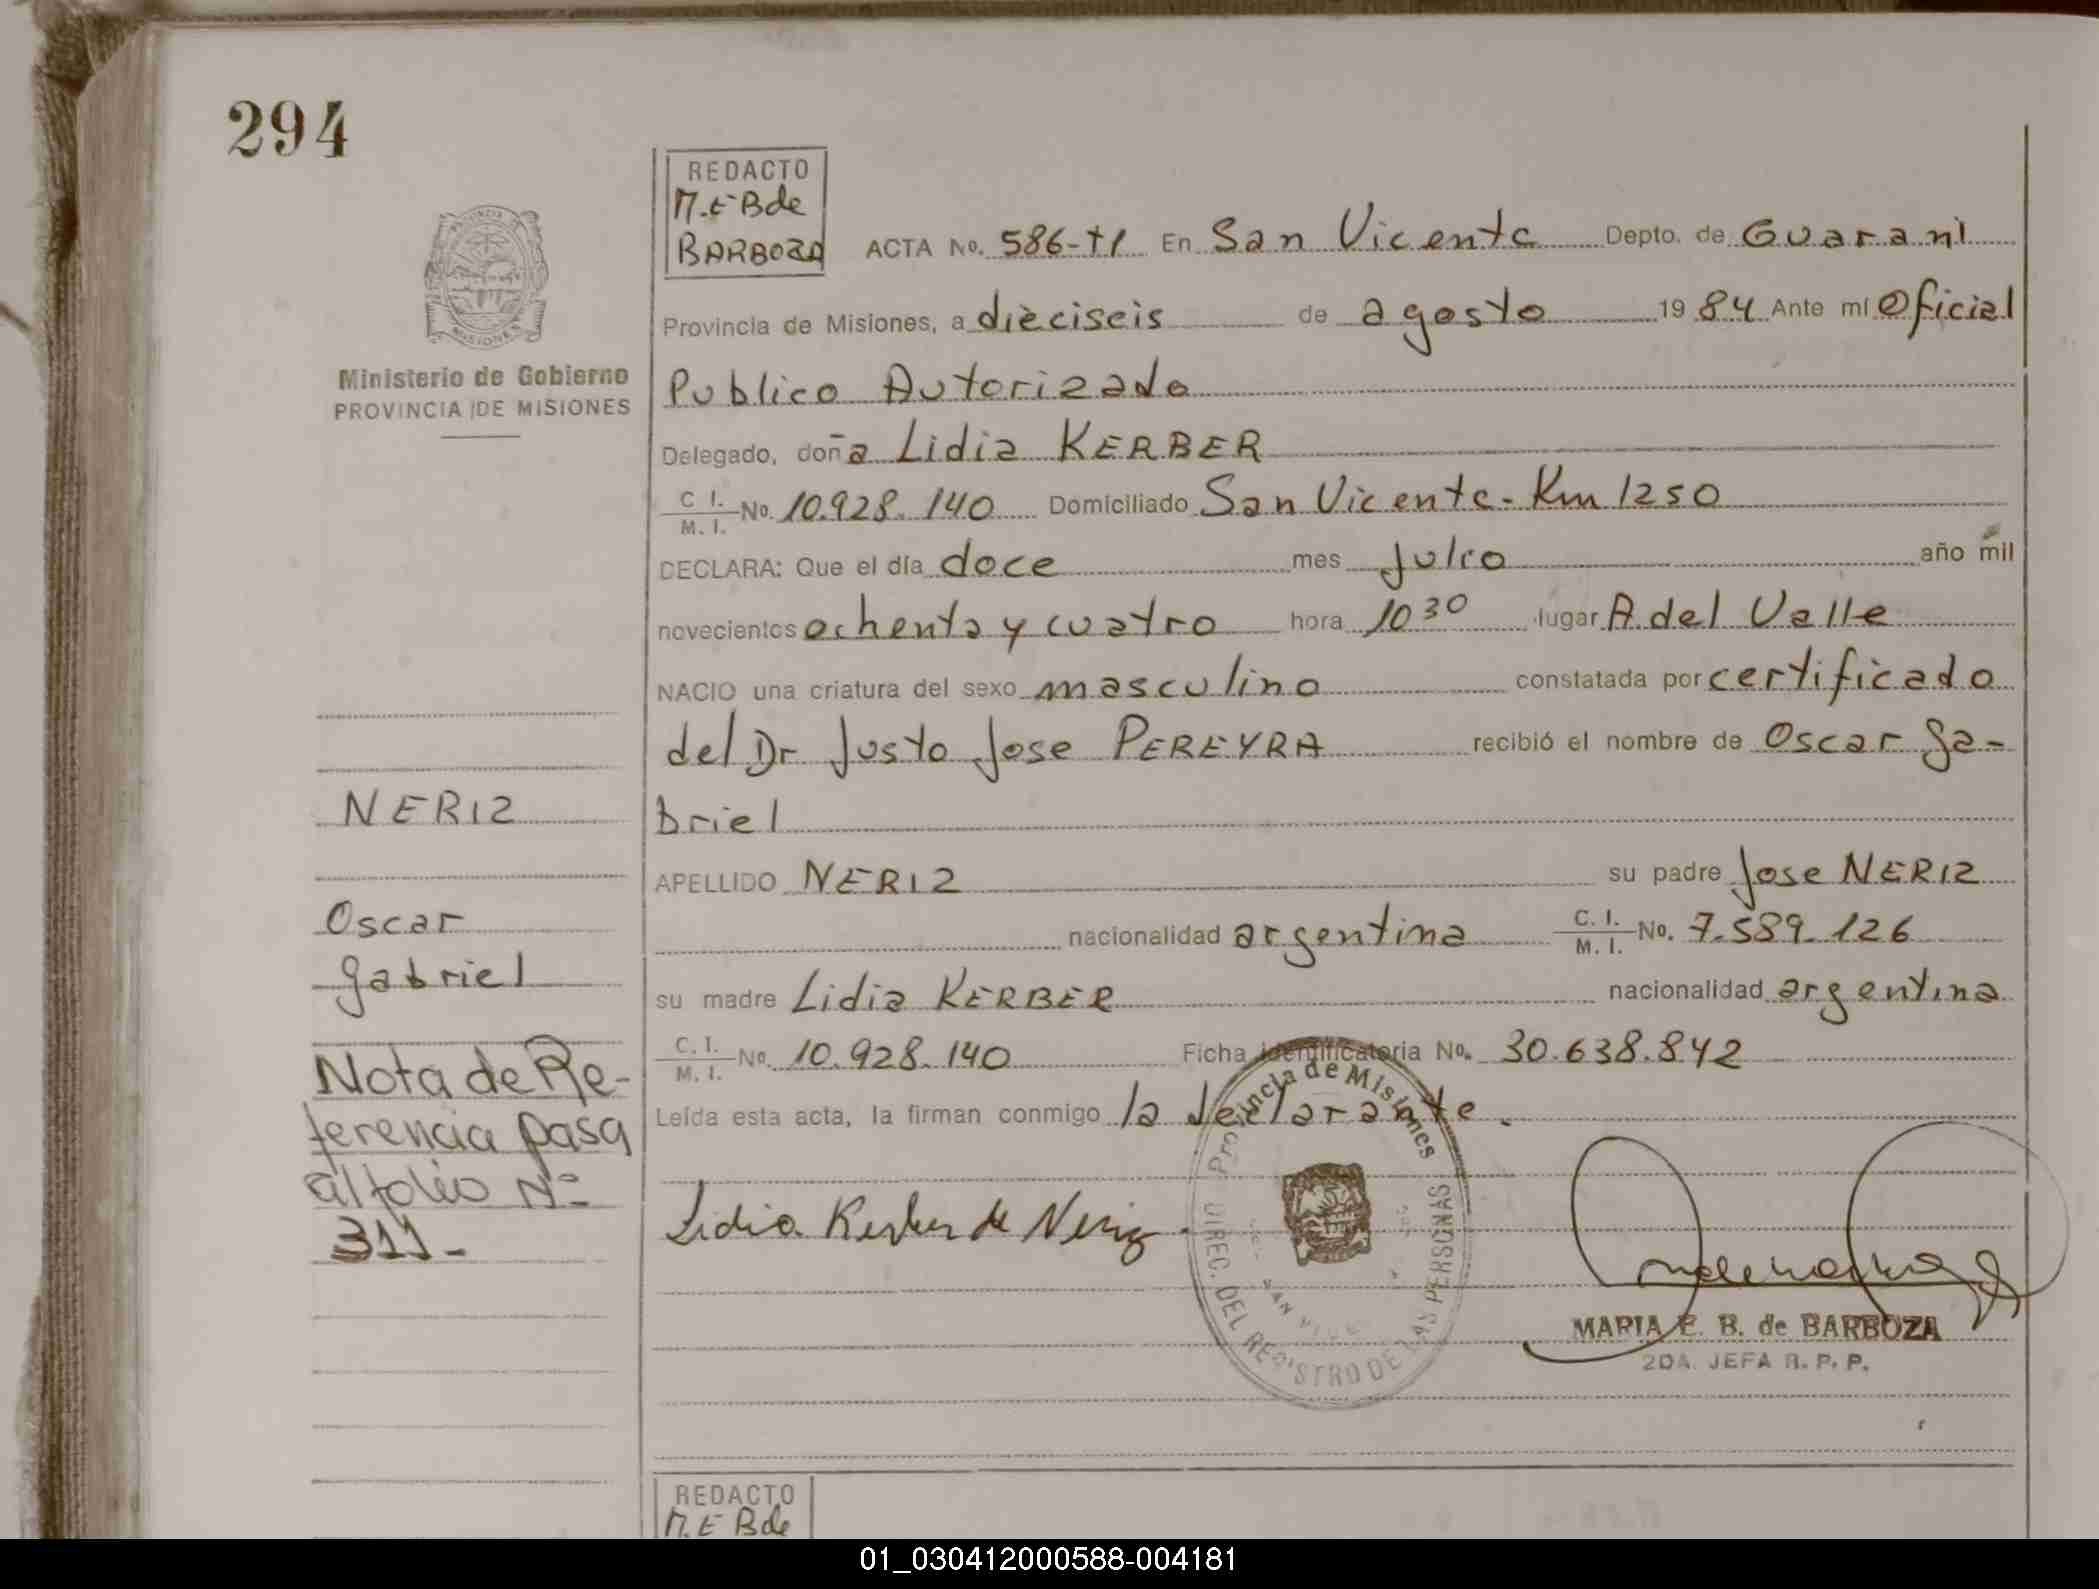 294
REDACTO
M.E Bde
BARBOZA
ACTA No. 586-t1 En San Vicente Depto. de Guarani
Provincia de Misiones, a dieciseis de agosto 1984 Ante mi Oficial
Publico Autorizado
Delegado, doña Lidia KERBER
C I. M. I. No. 10.928.140 Domiciliado San Vicente - Km 1250
DECLARA: Que el día doce mes Julio año mil
novecientos ochenta y cuatro hora 10 30 lugar A del Valle
NACIO una criatura del sexo masculino constatada por certificado
del Dr Justo Jose PEREYRA recibió el nombre de Oscar Ga-
briel
APELLIDO NERIZ su padre Jose NERIZ
nacionalidad argentina C. I. M. I. No. 7.589.126
su madre Lidia KERBER nacionalidad argentina
C. I. M. I. No. 10.928.140 Ficha identificatoria No. 30.638.842
Leída esta acta, la firman conmigo la declarante.
Lidia Kerber de Neriz
MARIA E. B. de BARBOZA
2DA. JEFA R. P. P.
Provincia de Misiones
DIREC. DEL REGISTRO DE LAS PERSONAS
PROVINCIA DE
MISIONES
Ministerio de Gobierno
PROVINCIA DE MISIONES
NERIZ
Oscar
Gabriel
Nota de Re-
ferencia pasa
al folio Nº
311-
REDACTO
M.E Bde
01_030412000588-004181